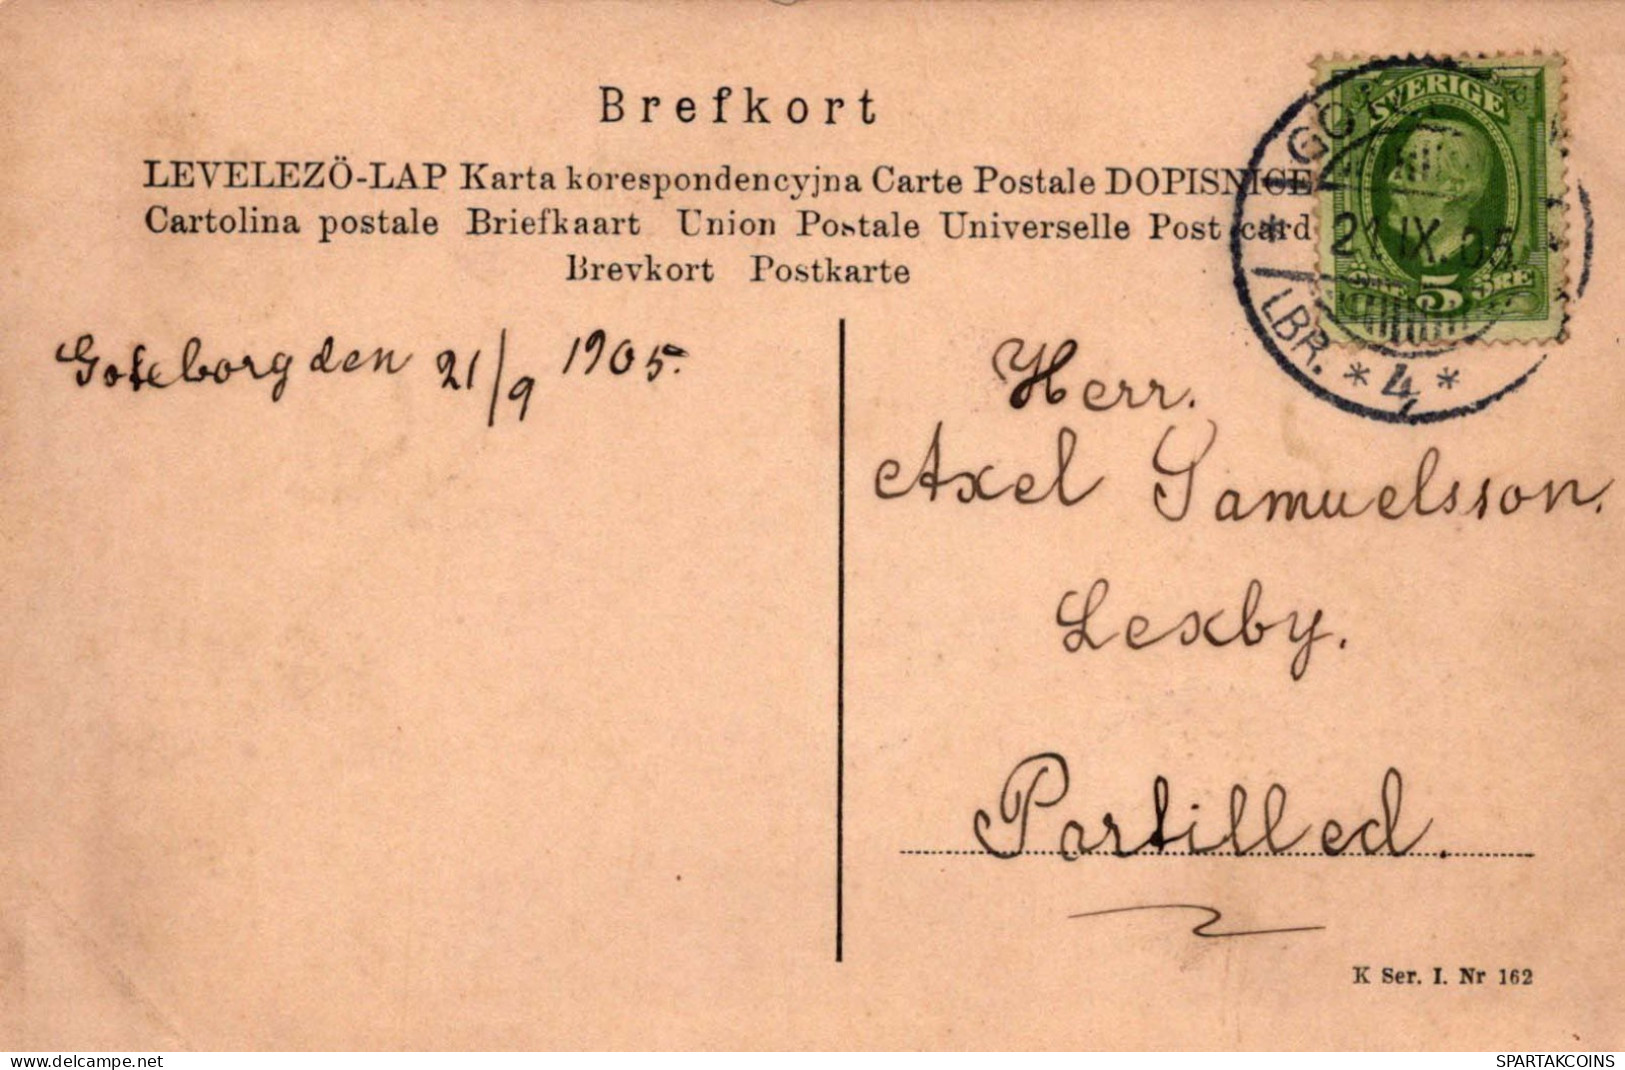 Brefkort
LEVELEZÖ-LAP Karta korespondencyjna Carte Postale DOPISNICE
Cartolina postale Briefkaart Union Postale Universelle Post card
Brevkort Postkarte
SVERIGE
5 ÖRE
21.IX.05
LBR. * 4 *
Goteborg den 21/9 1905.
Herr.
Axel Samuelsson.
Lexby.
Partilled.
K Ser. I. Nr 162
www.delcampe.net
SPARTAKCOINS